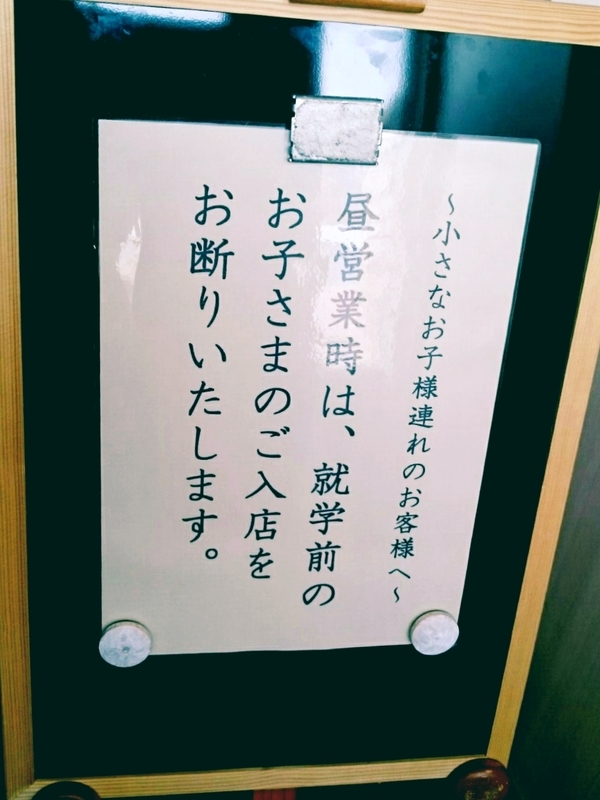 ～小さなお子様連れのお客様へ～
昼営業時は、就学前の
お子さまのご入店を
お断りいたします。